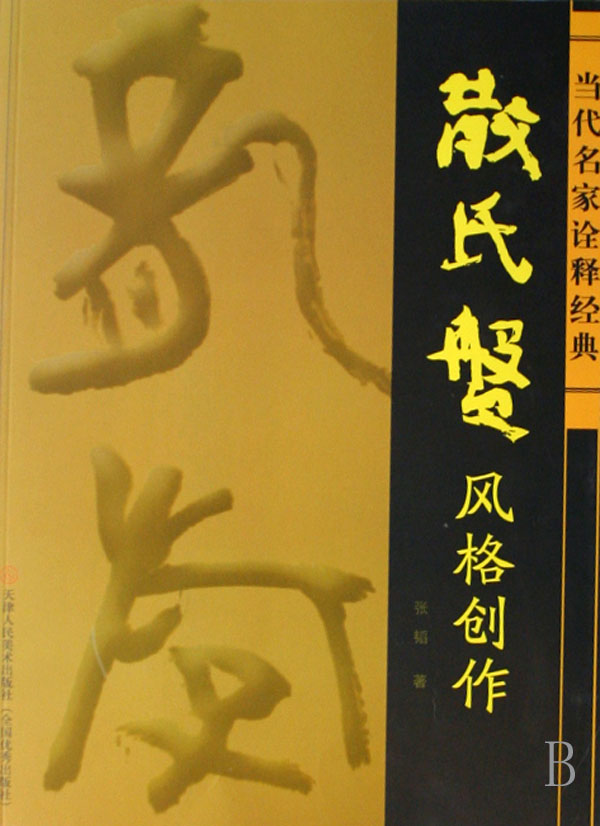 当代名家诠释经典
散氏盤
风格创作
张韬 著
天津人民美术出版社（全国优秀出版社）
B